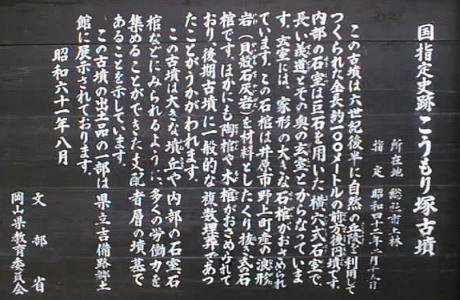 国指定史跡 こうもり塚古墳
所在地 総社市上林
指定 昭和四十三年二月十九日
この古墳は六世紀後半に自然の丘陵を利用して
つくられた全長約一〇〇メートルの前方後円墳です。
内部の石室は巨石を用いた横穴式石室で、
長い羨道とその奥の玄室とからなっていま
す。玄室には、家形の大きな石棺がおさめられ
ています。この石棺は井原市野上町産の浪形
岩(貝殻石灰岩)を材料としたくり抜き式の石
棺です。ほかにも陶棺や木棺がおさめられて
おり、後期古墳に一般的な複数埋葬であっ
たことがうかがわれます。
この古墳は大きな墳丘や内部の石室、石
棺などにみられるように、多くの労働力を
集めることができた支配者層の墳墓で
あることを示しています。
この古墳の出土品の一部は県立吉備路郷土
館に展示されております。
昭和六十一年八月
文部省
岡山県教育委員会